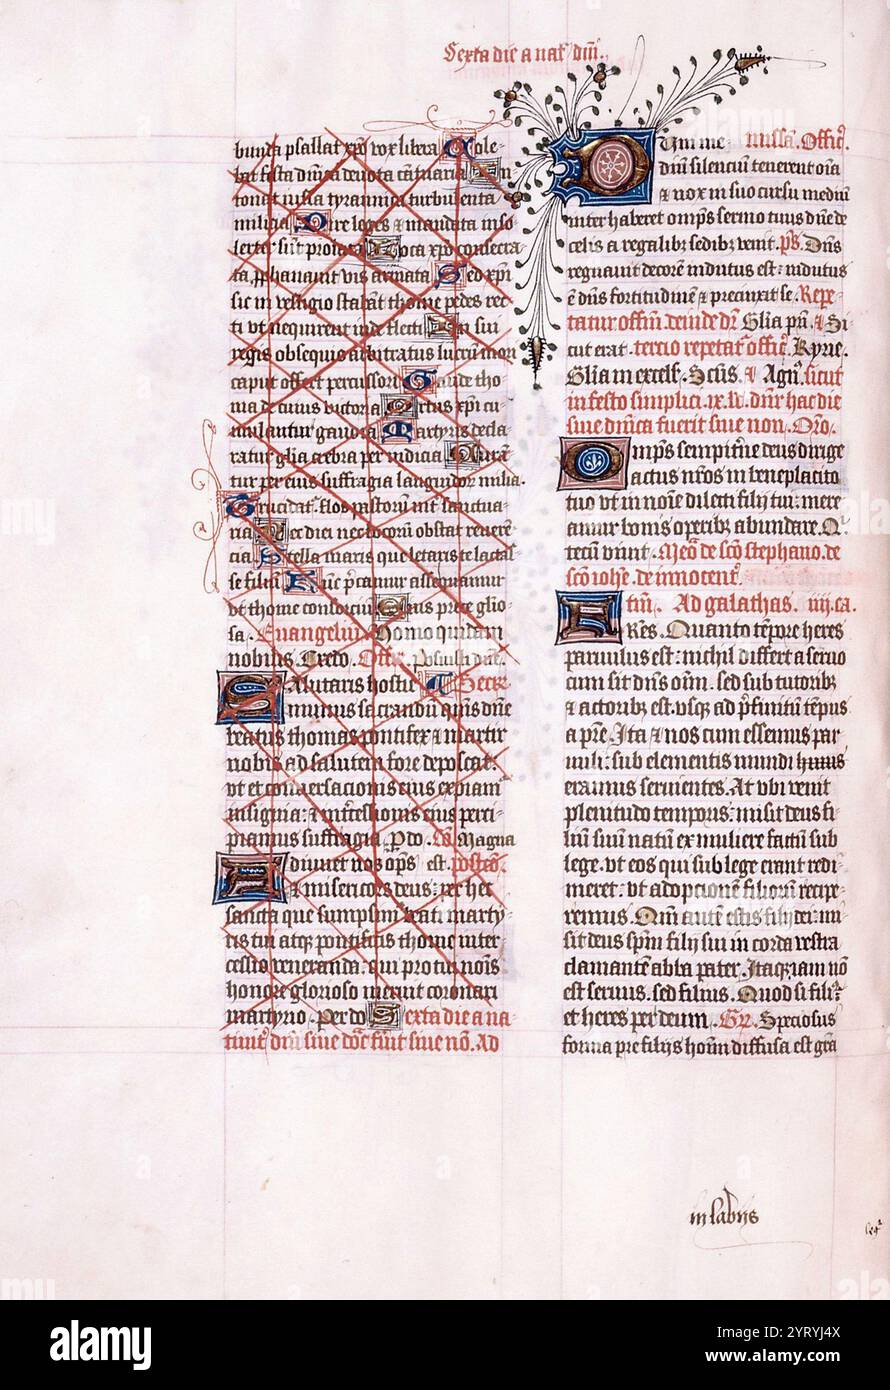 Sexta die a nat dni.
bunda psallat xpo vox libera Cole
bat festa dnica devota cantuaria In
tonat infia tyrannica turbulenta
milicia Dire leges & mandata inso
lenter sunt Loca xpo consecra
ta pphanavit vis armata Sed xpi
sic in vestigio stabant thome pedes rec
ti vt nequirent inde flecti In sui
regis obsequio arbitratus lucrum mori
caput offert percussori Gaude tho
ma de cuius victoria Ortus xpi cu
mulantur gaudia Martyris decla
ratur glia crebra per indicia Curan
tur per eius suffragia languidor milia.
Trucidat flos pastorum int sanctua
ria Nec diei nec locorum obstat reveren
cia Stella maris que letaris te lactas
se filium Fac precamur assequamur
vt thome consorcium Eius prece glio
sa. Evangelium Homo quidam
nobilis Credo. Offer. Posuisti dne.
Salutaris hostie Secre.
munus sacrandum quis dne
beatus thomas pontifex & martir
nobis ad salutem fore deposcat:
vt et conversacionis eius
insignia: & eius perci
piamus suffragia. p do. Co Magna
Adiuvet nos ops est. postco.
& misericors deus: per hec
sancta que sumpsimus beati marty
ris tui atq pontificis thome inter
cessio veneranda: qui pro tui nois
honore glorioso meruit coronari
martyrio. per do Sexta die a na
tivit dni sive dnica fuerit sive no. Ad
Dum me missam. Offic.
dium silencium tenerent oia
& nox in suo cursu medium
iter haberet omps sermo tuus dne de
celis a regalibz sedibz venit. ps. Dns
regnavit decorem indutus est: indutus
e dns fortitudinem & precinxit se. Repe
tatur offm. deinde dr Glia pri. & Si
cut erat. tercio repetat offic. Kyrie.
Glia in excels. Scus. & Agn. sicut
in festo simplici .ix. lc. dnr hac die
sive dnica fuerit sive non. Oro.
Omps sempitne deus dirige
actus nros in beneplacito
tuo vt in noie dilecti filij tui: mere
amur bonis operibz abundare. Q
tecum vivit. Meo de sco stephano. de
sco iohe. de innocent.
tm. Ad galathas. iiij. ca.
Fres. Quanto tempore heres
parvulus est: nichil differt a servo
cum sit dns oim. sed sub tutoribz
& actoribz est. vsq ad pfinitum tempus
a pre. Ita & nos cum essemus par
vuli: sub elementis mundi huius
eramus servientes. At vbi venit
plenitudo temporis: misit deus fi
lium suum natum ex muliere factum sub
lege. vt eos qui sub lege erant redi
meret: vt adopcionem filiorum recipe
remus. Qm autem estis filij dei: mi
sit deus spm filij sui in corda vestra
clamantem abba pater. Itaq iam no
est servus. sed filius. Quod si fili
et heres per deum. Gr. Speciosus
forma pre filijs homi diffusa est gra
in labijs
alamy
Image ID: 2SYRYJ4X
www.alamy.com